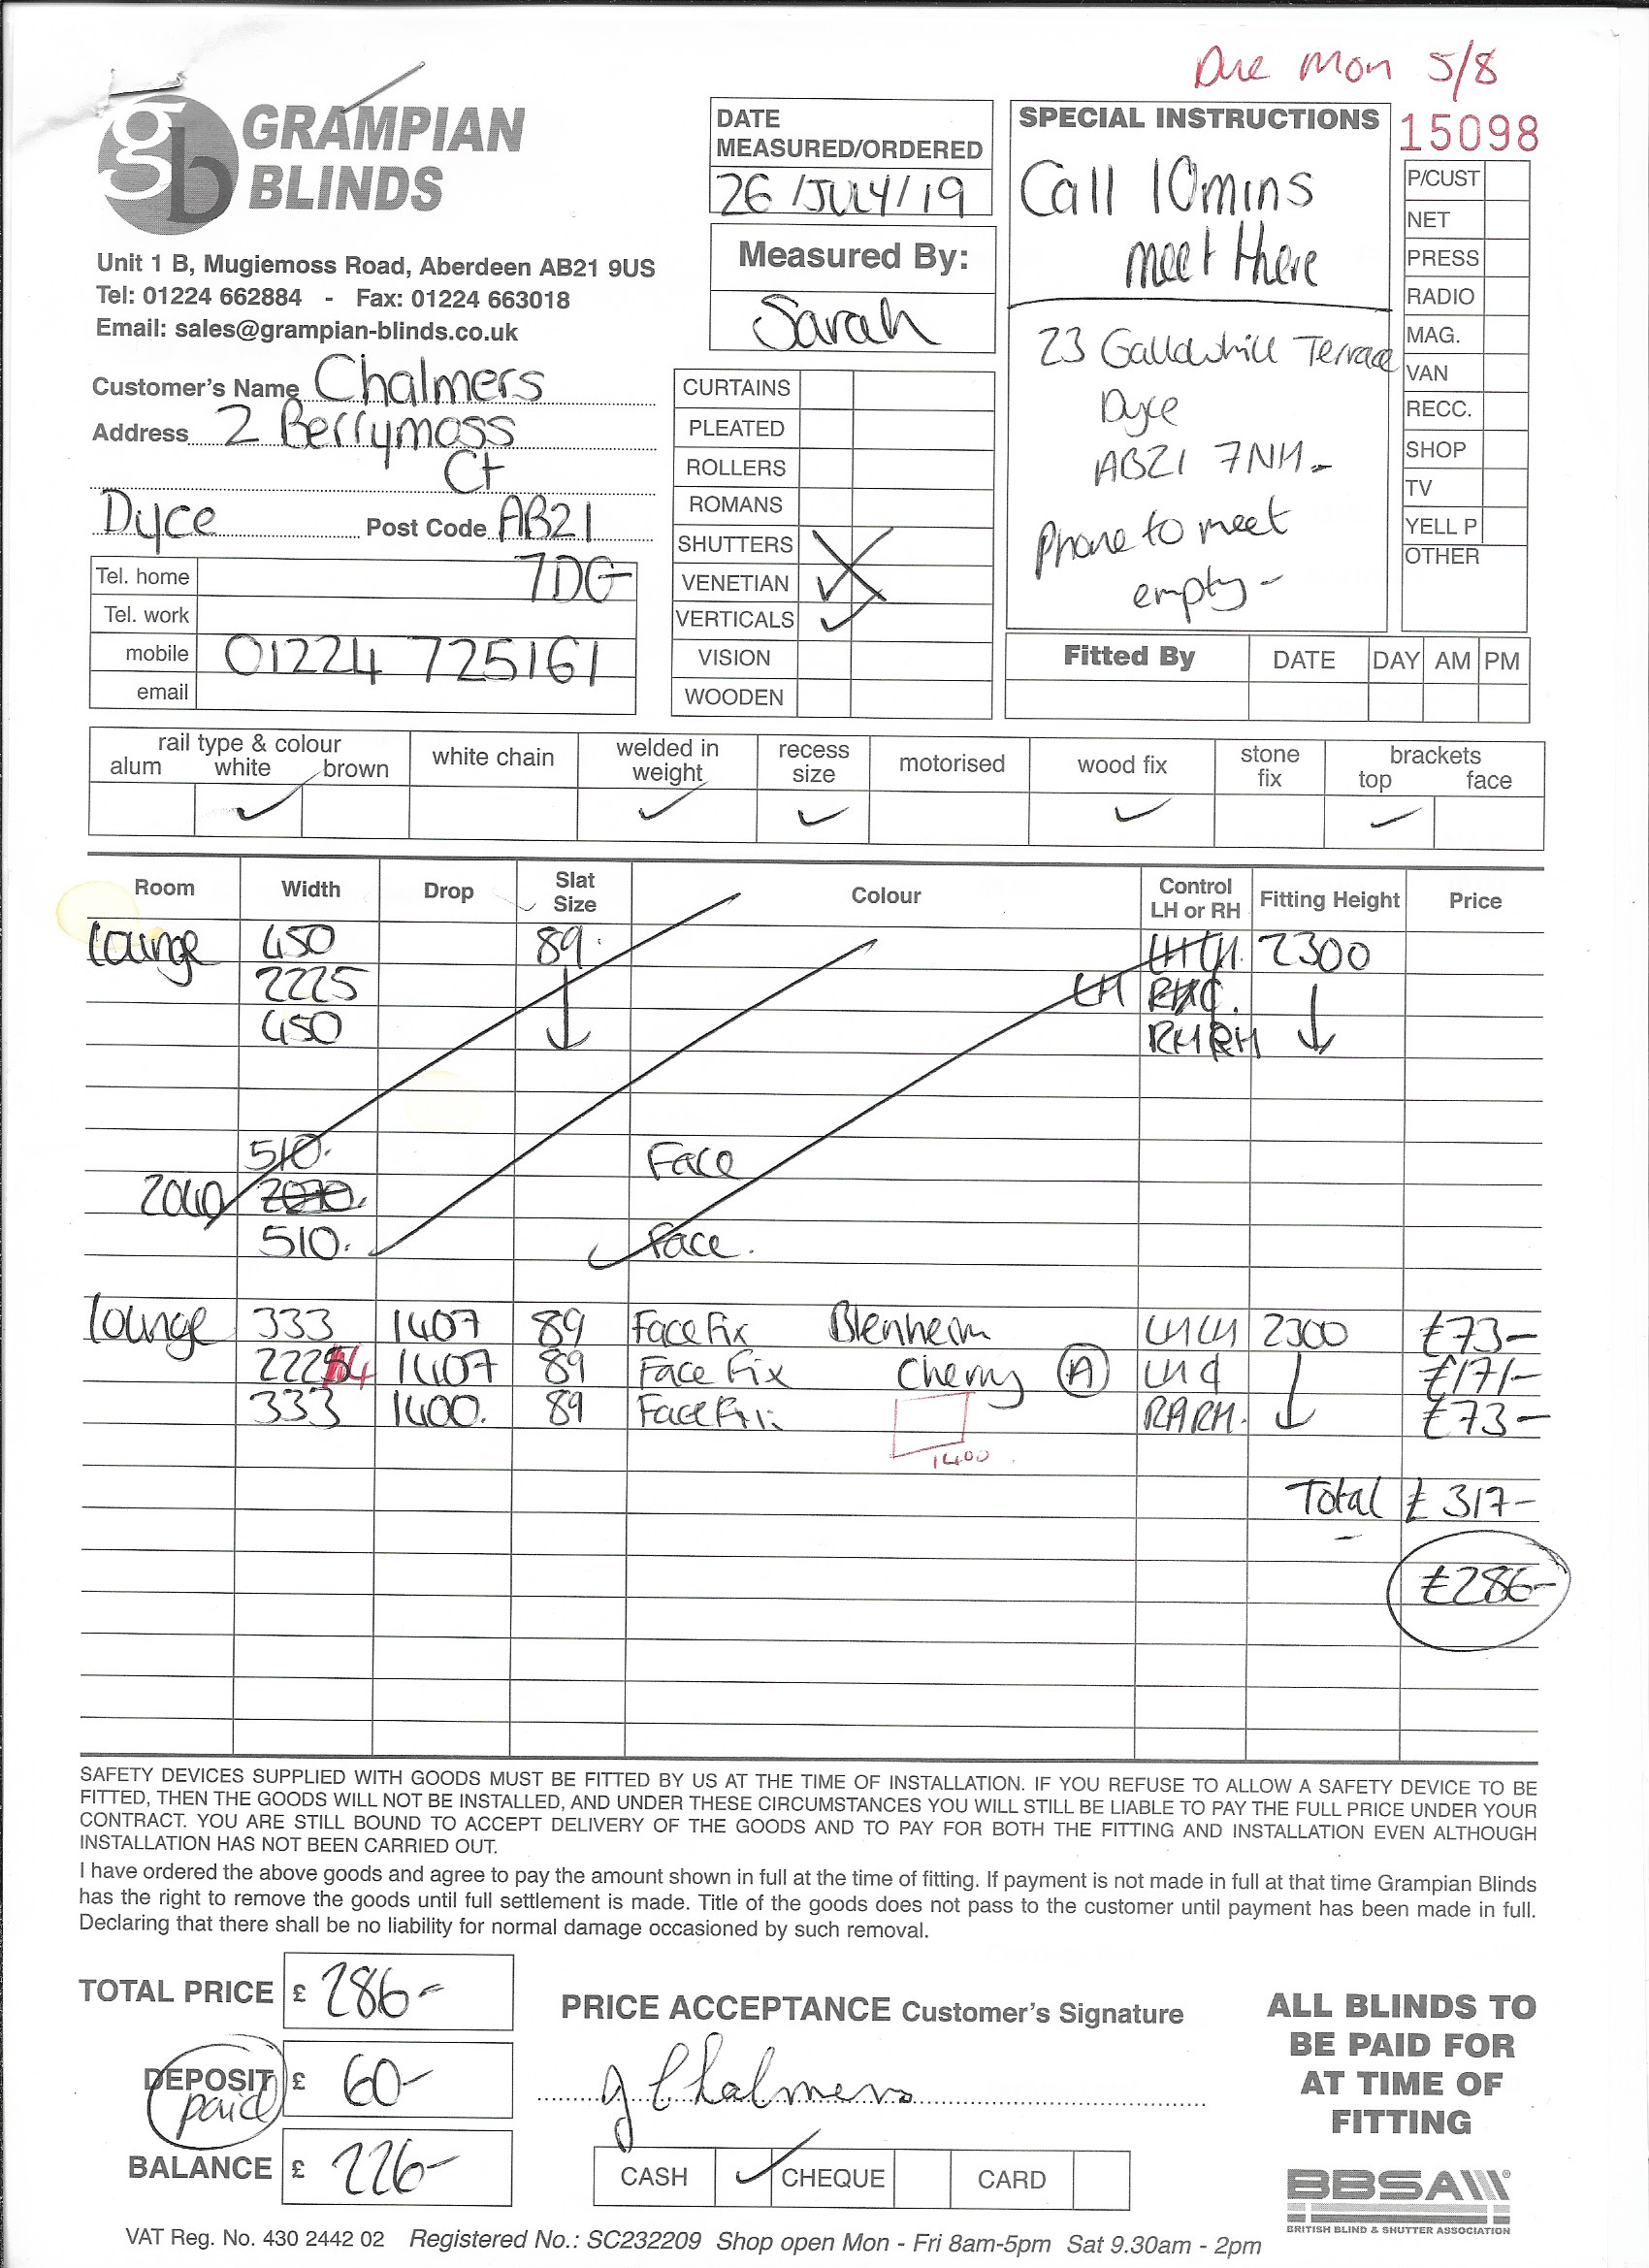 Due Mon 5/8
gb GRAMPIAN BLINDS
Unit 1 B, Mugiemoss Road, Aberdeen AB21 9US
Tel: 01224 662884 - Fax: 01224 663018
Email: sales@grampian-blinds.co.uk
Customer's Name Chalmers
Address 2 Berrymoss
Ct
Dyce Post Code AB21
7DG
Tel. home
Tel. work
mobile 01224 725161
email
DATE
MEASURED/ORDERED
26/JULY/19
Measured By:
Sarah
CURTAINS
PLEATED
ROLLERS
ROMANS
SHUTTERS
VENETIAN
VERTICALS
VISION
WOODEN
SPECIAL INSTRUCTIONS
Call 10mins
meet there
23 Gallowhill Terrace
Dyce
AB21 7NH-
Phone to meet
empty-
15098
P/CUST
NET
PRESS
RADIO
MAG.
VAN
RECC.
SHOP
TV
YELL P
OTHER
Fitted By DATE DAY AM PM
rail type & colour
alum white brown
white chain
welded in weight
recess size
motorised
wood fix
stone fix
brackets
top face
Room Width Drop Slat Size Colour Control LH or RH Fitting Height Price
lounge 450 89 2300
2225 LH
450 RHRH
510. Face
2010 2070.
510. Face.
lounge 333 1407 89 Face Fix Blenheim LHLH 2300 £73-
2224 1407 89 Face Fix Cherry A LH £171-
333 1400. 89 Face Fix RHRH. £73-
1400
Total £317-
£286-
SAFETY DEVICES SUPPLIED WITH GOODS MUST BE FITTED BY US AT THE TIME OF INSTALLATION. IF YOU REFUSE TO ALLOW A SAFETY DEVICE TO BE
FITTED, THEN THE GOODS WILL NOT BE INSTALLED, AND UNDER THESE CIRCUMSTANCES YOU WILL STILL BE LIABLE TO PAY THE FULL PRICE UNDER YOUR
CONTRACT. YOU ARE STILL BOUND TO ACCEPT DELIVERY OF THE GOODS AND TO PAY FOR BOTH THE FITTING AND INSTALLATION EVEN ALTHOUGH
INSTALLATION HAS NOT BEEN CARRIED OUT.
I have ordered the above goods and agree to pay the amount shown in full at the time of fitting. If payment is not made in full at that time Grampian Blinds
has the right to remove the goods until full settlement is made. Title of the goods does not pass to the customer until payment has been made in full.
Declaring that there shall be no liability for normal damage occasioned by such removal.
TOTAL PRICE £ 286-
DEPOSIT £ 60-
paid
BALANCE £ 226-
PRICE ACCEPTANCE Customer's Signature
J Chalmers
CASH CHEQUE CARD
ALL BLINDS TO
BE PAID FOR
AT TIME OF
FITTING
BBSA
BRITISH BLIND & SHUTTER ASSOCIATION
VAT Reg. No. 430 2442 02 Registered No.: SC232209 Shop open Mon - Fri 8am-5pm Sat 9.30am - 2pm